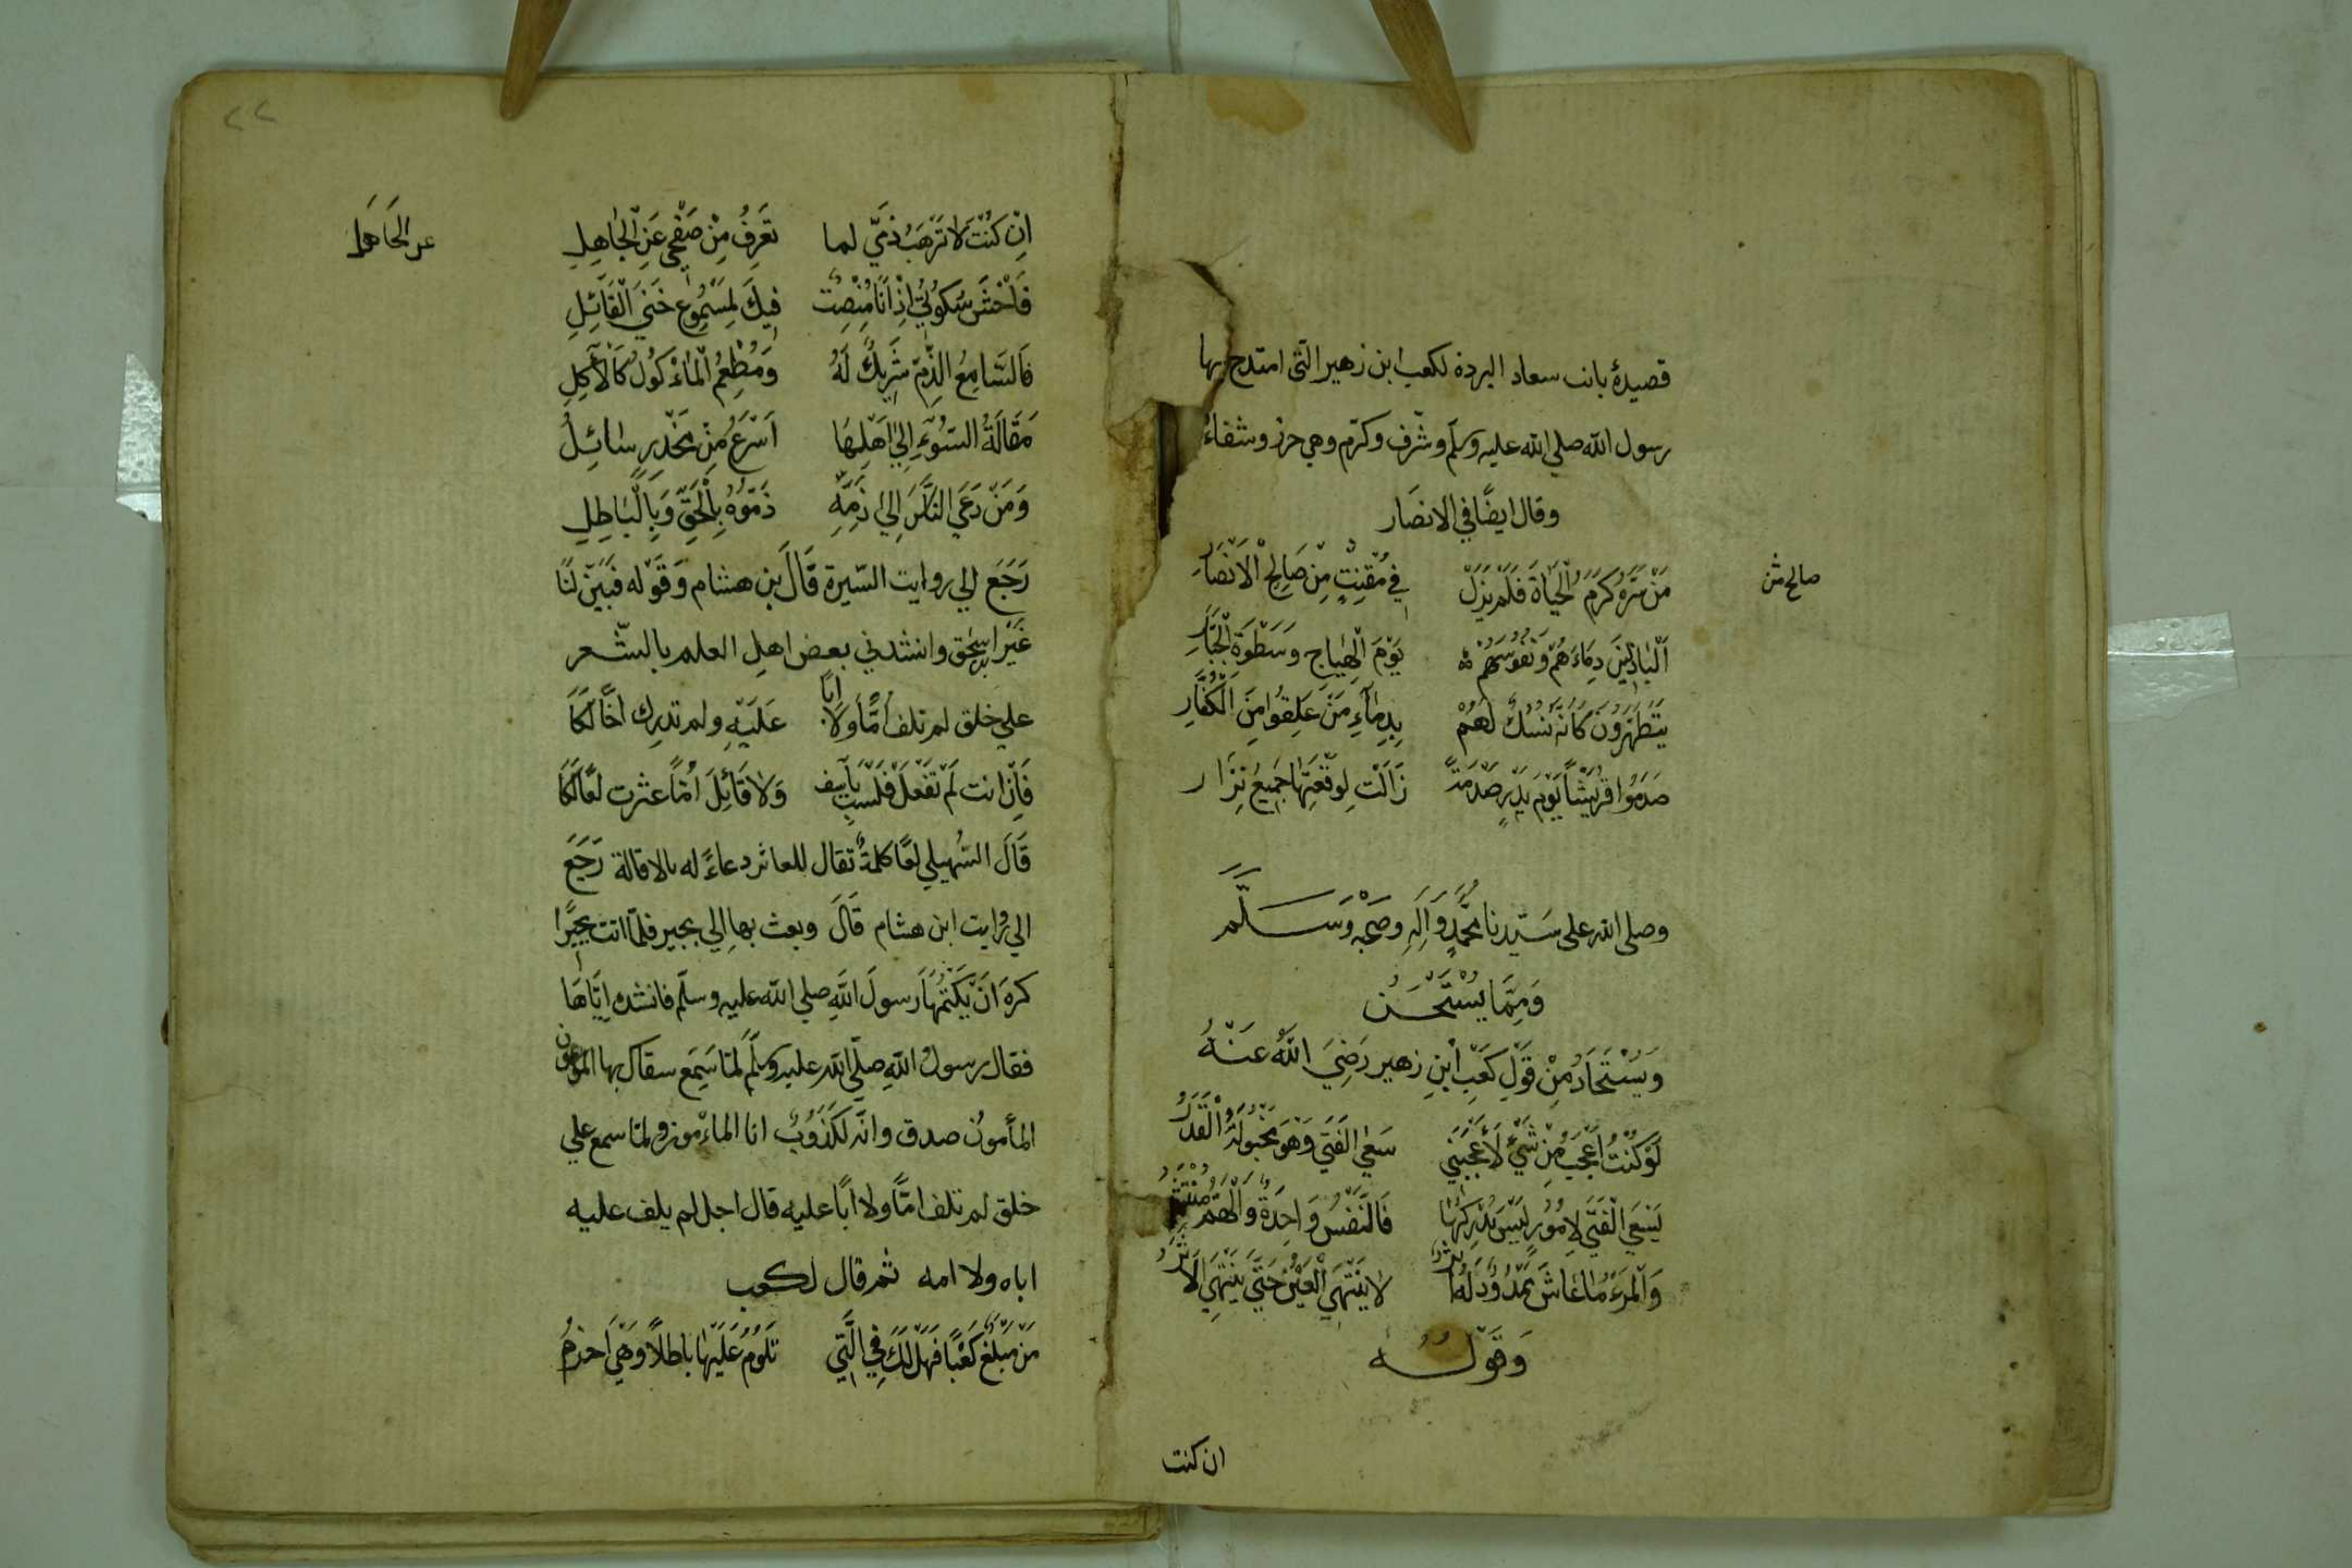 قصيدة بانت سعاد البردة لكعب ابن زهير التى امتدح بها
رسول الله صلي الله عليه وسلم وشرف وكرم وهي حرز وشفاء
وقال ايضًا في الانصَار
مَنْ سَرَّهُ كَرَمُ الْحَيَاةِ فَلَمْ يَزَلْ في مُقْنِتٍ مِنْ صَالِحِ الْأَنْصَارِ
صالح من
اَلْبَاذِلِينَ دِمَاءَهُمْ وَنُفُوسَهُمْ يَوْمَ الْهِيَاجِ وَسَطْوَةِ الْجَبَّارِ
يَتَطَهَّرُونَ كَأَنَّهُ نُسُكٌ لَهُمْ بِدِمَآءِ مَنْ عَلِقُوا مِنَ الْكُفَّارِ
صَدَمُوا قُرَيْشًا يَوْمَ بَدْرٍ صَدْمَةً زَالَتْ لِوَقْعَتِهَا جَمِيعُ نِزَار
وصلى الله على سَيّدنا مُحَمَّدٍ وَآلِهِ وصَحْبِهِ وَسَلَّم
وَمِمَّا يُسْتَحْسَنُ
وَيُسْتَجَادُ مِنْ قَوْلِ كَعْبِ ابْنِ زهير رَضِيَ اللَّهُ عَنْهُ
لَوْ كُنْتُ اَعْجَبُ مِنْ شَيْءٍ لَأَعْجَبَنِي سَعْيُ الْفَتَى وَهْوَ مَخْبُوٌّ لَهُ الْقَدَرُ
يَسْعَى الْفَتَى لِامُورٍ لَيْسَ يُدْرِكُهَا فَالنَّفْسُ وَاحِدَةٌ وَالْهَمُّ مُنْتَشِرُ
وَالْمَرْءُ مَا عَاشَ مَمْدُودٌ لَهُ اثر لا يَنْتَهِي الْعَيْنُ حَتَّى يَنْتَهِيَ الْأَثَرُ
وَقَوْلُهُ
ان كنت
٢٢
اِنْ كُنْتَ لَا تَرْهَبُ ذَمِّي لما تَعْرِفُ مِنْ صَفْحِي عَنِ الْجَاهِلِ
عن الجَاهل
فَاخْشَ سُكُوتِي اِذْ اَنَا مُنْصِتٌ فِيكَ لِمَسْمُوعِ خَنَى الْقَائِلِ
فَالسَّامِعُ الذَّمِّ شَرِيكٌ لَهُ وَمُطْعِمُ الْمَاءْكُولِ كَالْآكِلِ
مَقَالَةُ السُّوْءِ اِلَي اَهْلِهَا اَسْرَعُ مِنْ مُنْحَدِرٍ سَائِلِ
وَمَنْ دَعَي النَّاسَ اِلَي ذَمِّهِ ذَمُّوهُ بِالْحَقِّ وَبِالْبَاطِلِ
رَجَعَ الي روايت السّيرة قَالَ بن هشام وَقَوْله فَبَيِّنْ لَنَا
غَيْر ابن اسحق وانشدني بعض اهل العلم بالشّعر
علي خلق لم تلف اُمًّا وَلَا اَبًا عَلَيْهِ ولم تدرك اَخًا لَكَا
فَاِنْ انت لَمْ تَفْعَلْ فَلَسْتُ بِآسِفٍ وَلَا قَائِلَ اُمّا عثرت لَعًا لَكَا
قَالَ السّهيلي لعًا كلمةٌ تقال للعاثر دعاءً له بالاقالة رَجَعَ
الي روايت ابن هشام قَالَ وبعث بها الي بجير فلمّا اتت بجيرًا
كرهَ اَنْ يَكْتُمَهَا رسولَ اللهِ صلي الله عليه وسلّم فانشده اِيَّاهَا
فقال رسولُ اللهِ صلّى الله عليه وسلّم لمّا سَمِعَ سقاك بها المأمون
المأمونُ صدق وانّه لَكَذُوبٌ انا الماءْمون ولمّا سمع علي
خلق لم تلف امًّا ولا ابًا عليه قال اجل لم يلف عليه
اباه ولا امه ثم قال لكعب
مَنْ مُبْلِغٌ كَعْبًا فَهَلْ لَكَ فِي الَّتِي تَلُومُ عَلَيْهَا بَاطلًا وَهْيَ اَحزمُ